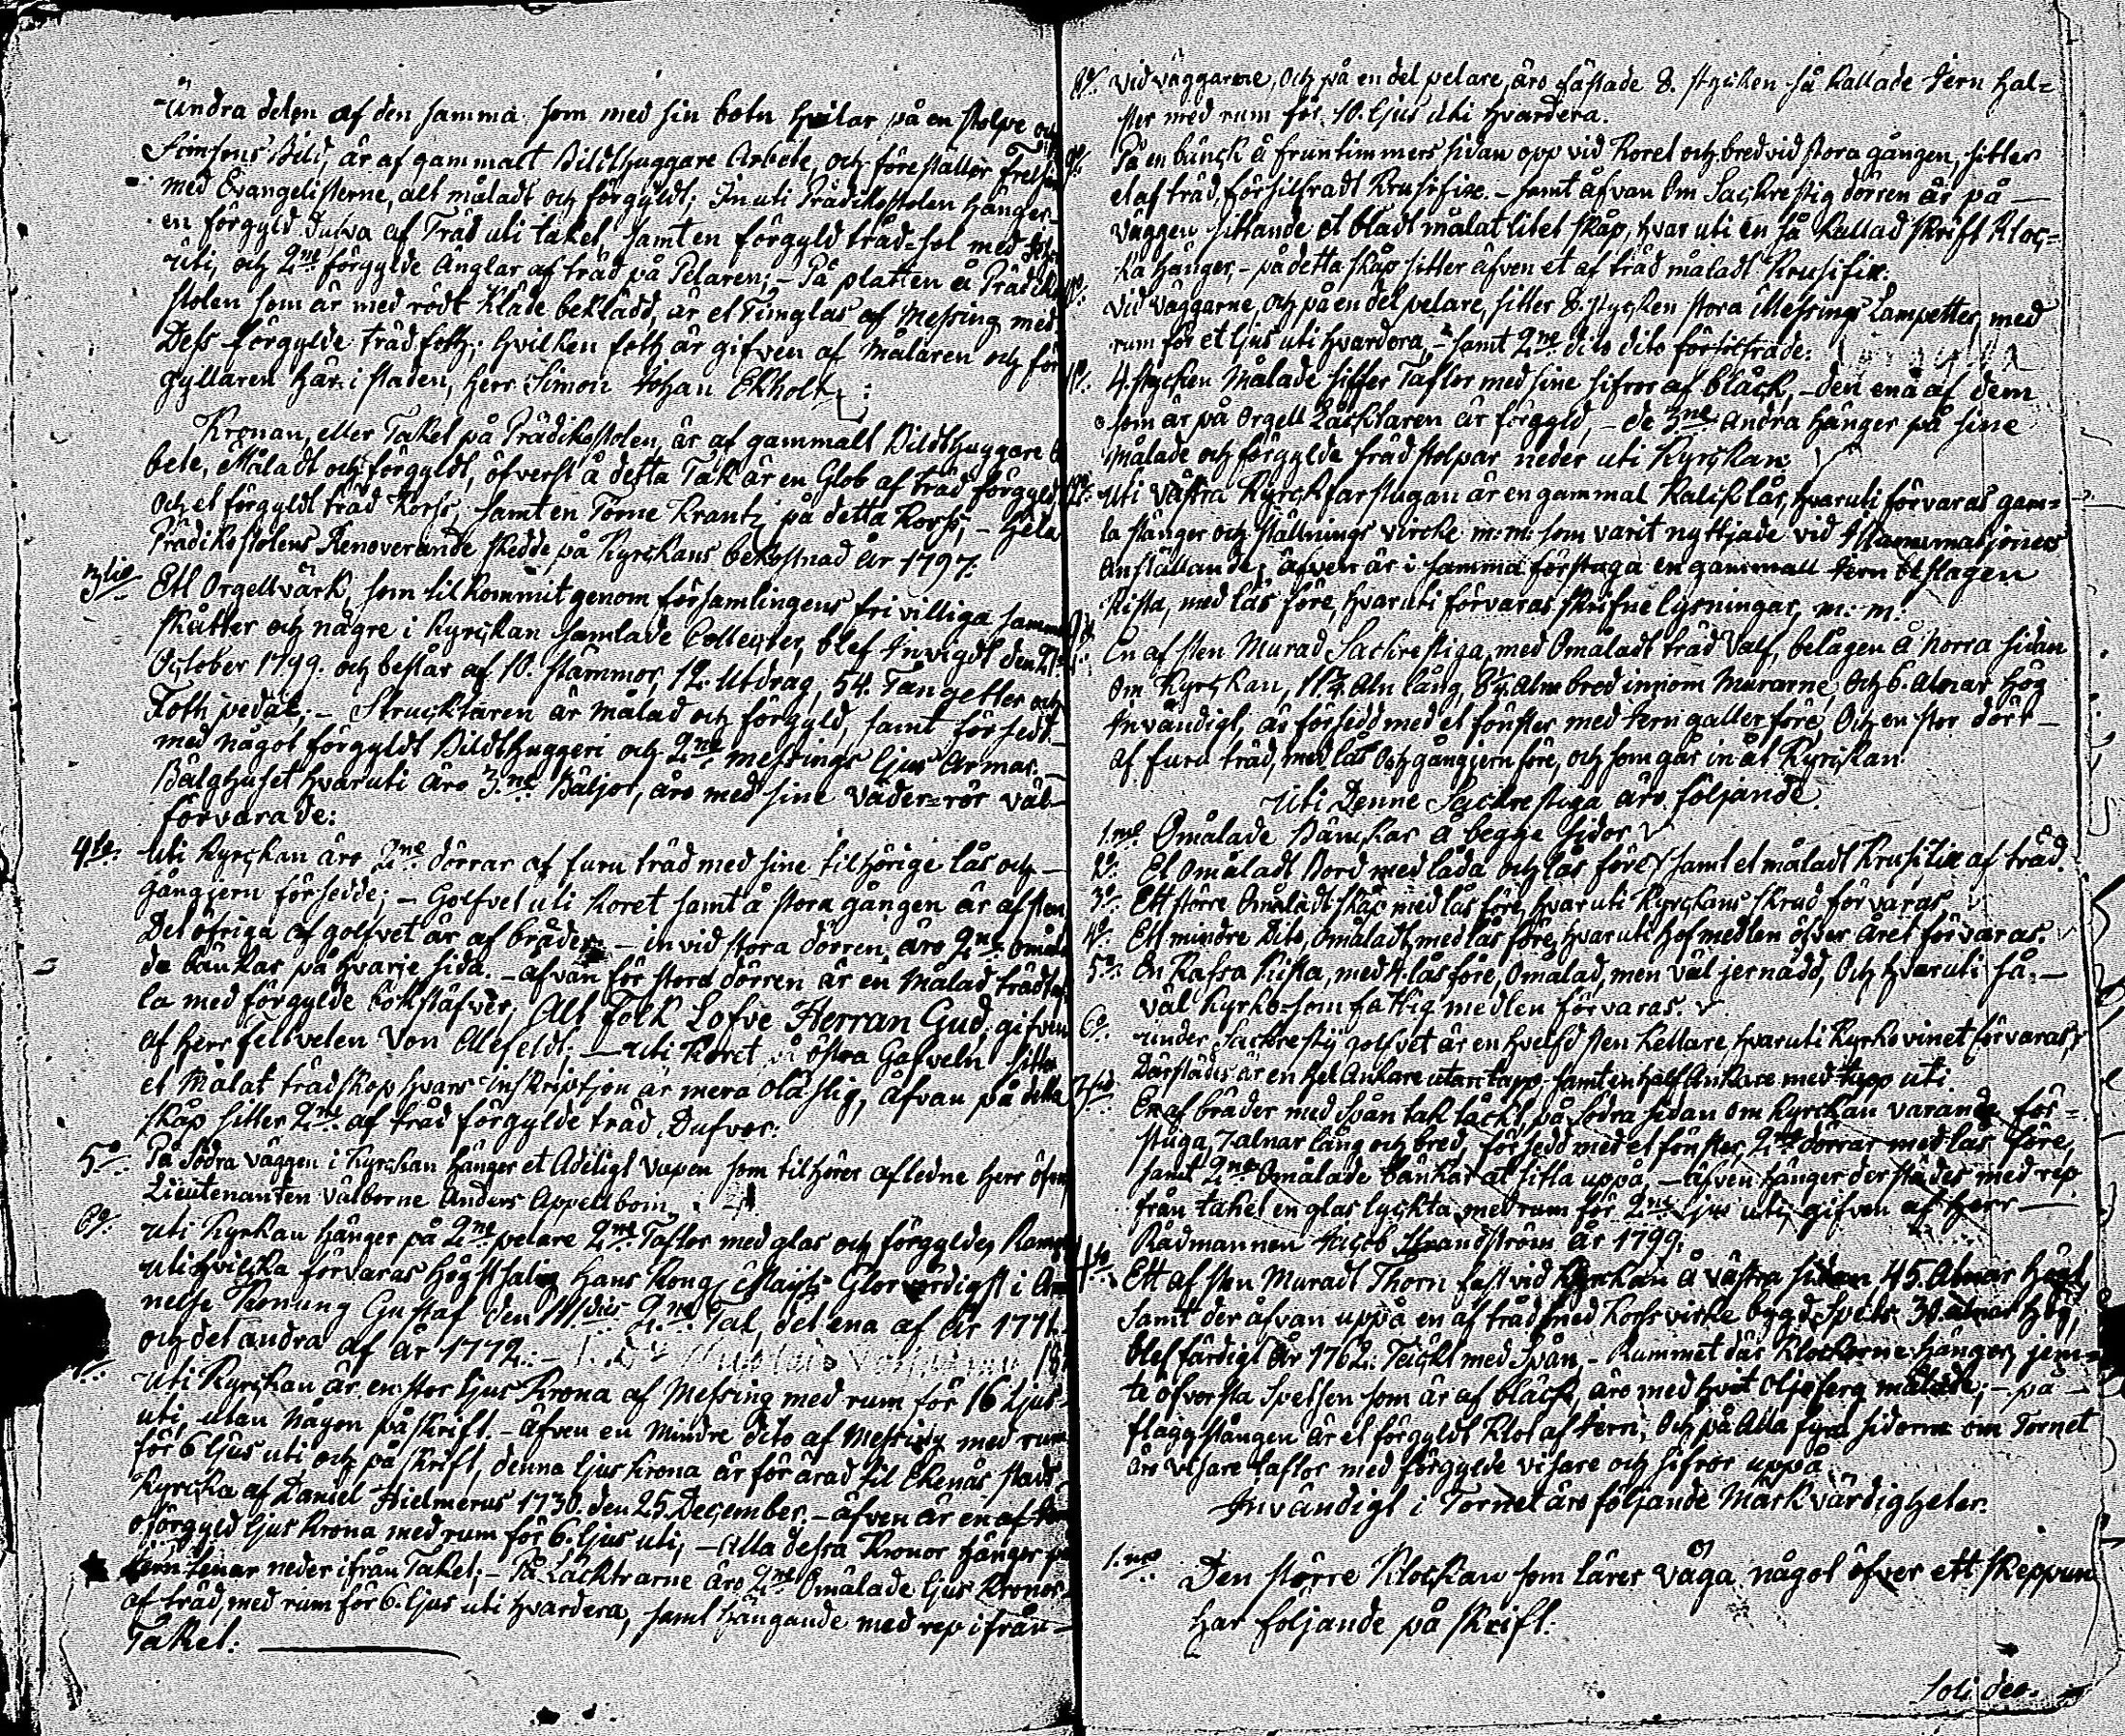 undra delen af den samma som med sin botn hvilar på en stolpe och
Simsons Bild, är af gammalt Bildthuggare Arbete, och föreställer frelsaren
med Evangelisterne, alt måladt och förgyldt; Inuti Prädikostolen hänger
en förgyld Dufva af Träd uti taket, samt en förgyld träd-sol med
uti, och 2ne förgylde Änglar af träd på Pelaren; - På platten å Prädiko
stolen som är med rödt Kläde beklädd, är et Timglas af Messing med
Dess förgylde träd foth; hvilken foth är gifven af Målaren och för
gyllaren här i staden, Herr Simon Johan Ekholm:
Kronan, eller Taket på Prädikostolen, är af gammalt Bildthuggare
bete, Måladt och förgyldt, öfverst å detta Tak är en Glob af träd förgyld
och et förgyldt träd Korss, samt en Törne Krantz på detta Korss; - Hela
Prädikostolens Renoverande skedde på Kyrckans bekostnad år 1797.
3tie Ett Orgellvärk, som tilkommit genom församlingens frivilliga samman
skåtter och någre i Kyrckan samlade Collecter, blef Invigdt den
October 1799. och består af 10. stämmor, 12. Utdrag, 54. Tangetter och
Foth pedal; - Strucktaren är målad och förgyld, samt försedt
med något förgyldt Bildthuggeri och 2ne messings ljus Armar.
Bälghuset hvaruti äro 3ne Bäljor, äro med sine väder-rör väl
förvarade:
4de Uti Kyrckan äro 2ne dörrar af furu träd med sine tilhörige lås och
gångjern försedde; - Golfvet uti Koret samt å stora gången är af sten,
Det öfriga af golfvet är af bräder; - invid stora dörren, äro 2ne omåla
de bänkar på hvarje sida. - åfvan för stora dörren är en Målad trädtaf
la med förgylde bokstäfver, Alt Folk Lofve Herran Gud, gifven
af Herr Feltvebeln Von Alefeldt; - Uti Koret på östra Gafveln sitter
et Målat trädskop hvars Inskriptjon är mera oläslig, åfvan på detta
skåp sitter 2ne af träd förgylde träd Dufvor.
5o På Södra väggen i Kyrckan hänger et Adeligt Vapen som tilhörer afledne Herr öfverste
Lieutenanten Välborne Anders Appellbom.
6o Uti Kyrkan hänger på 2ne pelare 2ne Taflor med glas och förgylde Ramar
uti hvilcka förvaras Högstsalig Hans Kong. Maijts Glorvördigst i Åmin
nelse Konung Gustaf den IIIdies 2ne Tal, det ena af år 1771.
och det andra af år 1772. -
Uti Kyrckan är en stor ljus Krona af Messing med rum för 16 Ljus
uti, utan någon påskrift. - äfven en Mindre dito af Messing med rum
för 6 ljus uti och på skrift, denna ljus krona är för ärad til Ekenäs stads
Kyrcka af Daniel Hielmerus 1730. den 25 December. - äfven är en af
oförgyld ljus krona med rum för 6. ljus uti; - Alla dessa Kronor hänger på
jern stänar neder ifrån Taket; - På Läcktrarne äro 2ne Omålade ljus kronor
af träd, med rum för 6. ljus uti hvardera, samt hängande med rep ifrån
Taket:
8o vid väggarne, och på en del pelare, äro fästade 8. stycken så kallade Jern hal-
ster med rum för 10. ljus uti hvardera.
9o På en bänck å fruntimmers sidan opp vid Koret och bred vid stora gången, sitter
et af träd, försilfradt Krusifix. - samt åfvan om Sackrestig dörren är på
väggen sittande et blådt målat litet skåp, hvaruti en så kallad skrift kloc-
ka hänger, - på detta skåp sitter äfven et af träd måladt Krusifix.
vid väggarne, och på en del pelare, sitter 8. stycken stora Messings Lampetter, med
rum för et ljus uti hvardera, - samt 2ne dito dito försilfrade.
4. stycken Målade siffer Taflor med sine sifror af bläck, - den ena af dem
som är på orgell Läcktaren är förgyld, - de 3ne andra hänger på sine
målade och förgylde träd stolpar neder uti Kyrckan.
uti västra Kyrckfarstugan är en gammal Kalcklår, hvaruti förvaras gam-
la stänger och ställnings vircke m: m: som varit nyttjade vid Illuminatjoners
anställande; äfven är i samma förstuga en gammall Jern beslagen
kista, med lås före, hvaruti förvaras skrifne lysningar, m: m:
En af sten Murad Sackrestiga, med Omåladt träd Valf, belägen å Norra sidan
om Kyrckan, 11 3/4. Aln lång, 8 1/4. Aln bred innom Murarne, och 6. Alnar hög
Invändigt, är försedd med et fönster med Jern galler före, och en stor dörr
af furu träd, med lås och gångjern före, och som går in åt Kyrckan.
Uti Denne Sackrestiga äro följande:
1.mo Omålade Bänckar å begge sidor
2o Et Omåladt Bord med låda och lås före, samt et måladt Krusifix af träd.
3o Ett större Omåladt skåp med lås före, hvaruti Kyrckans skrud förvaras
4o Ett mindre Dito, omåladt, med lås före, hvaruti Hofmedlen öfver året förvaras.
5o En Kassa Kista, med 4. lås före, Omålad, men väl jernadd, och hvaruti så-
väl Kyrko- som fattig medlen förvaras.
6o under Sackrestij golfvet är en hvelfd sten Kellare, hvaruti Kyrkovinet förvaras,
Därstädes är en hel Ankare utan tapp samt en half Ankare med tapp uti.
En af bräder med Spån tak täckt, på Södra sidan om Kyrckan varande för-
stuga, 7 alnar lång och bred, försedd med et fönster, 2ne dörrar med lås före,
samt 2ne Omålade bänkar at sitta uppå, - äfven hänger derstädes med rep
från taket en glas lyckta med rum för 2ne ljus uti, gifven af Herr
Rådmannen Jacob Strandström år 1799.
Ett af sten Muradt Thorn fast vid Kyrckan å västra sidan 45. Alnar högt,
samt der åfvan uppå en af träd med Korsvirke bygd Spits 30. alnar hög,
blef färdigt År 1762. Täckt med Spån, - Rummet där Klockorne hänger, jem-
te öfversta Spetsen som är af bläck, äro med hvit oljeferg målade; - på
flaggstången är et förgyldt Klot af Jern, och på Alla fyra sidorne om Tornet
äro visare taflor med förgylde visare och sifror uppå.
Invändigt i Tornet äro följande Märkvärdigheter.
1.mo Den större Klockan som lärer väga något öfver ett skeppund
har följande på skrift.
Soli deo